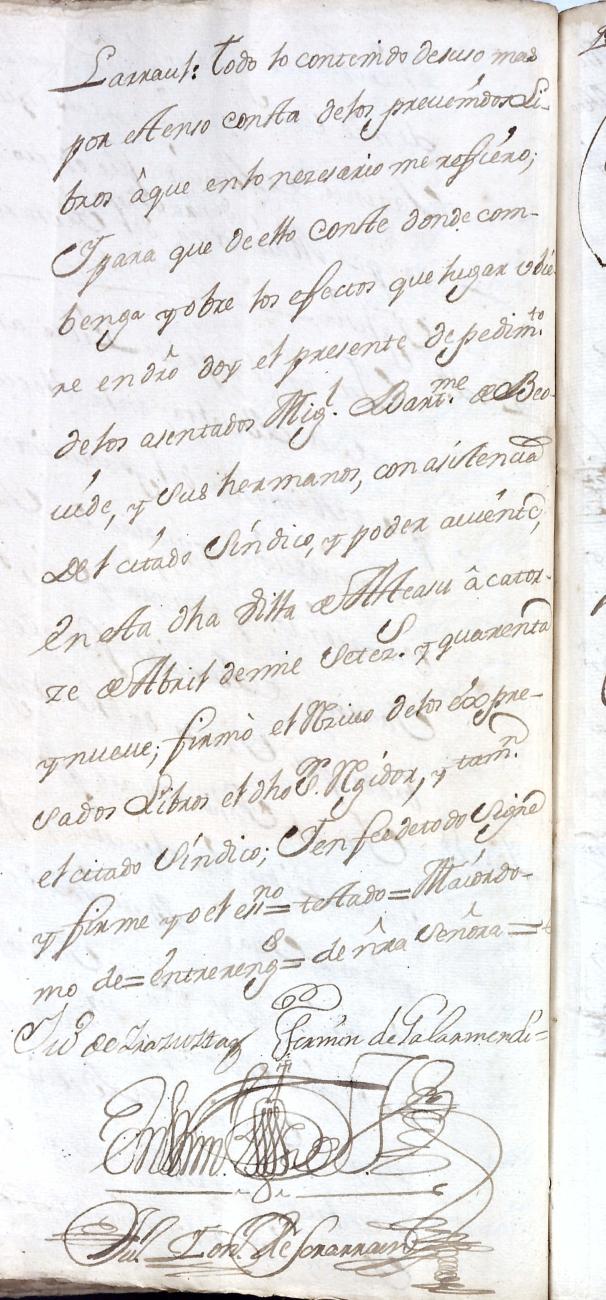 Larraul: Todo lo contenido desuso mas
por extenso consta delos prevenidos Li-
bros â que en lo nezesario me refiero;
Y para que de ello conste donde com-
benga y obre los efectos que lugar vbie
re en dr̂o doy el presente de pedim.to
de los asentados Mig.l Bart.me de Beo-
uide, y sus hermanos, con asistencia
del citado Síndico, y poder auiente,
En esta dha Villa de Alteasu â cator-
ze de Abril de mil Setez.s y quarenta
y nueue; firmò el Rziuo delos expre-
sados Libros el dho S.r Rexidor, y tam.n
el citado Síndico; Y en fee de todo signe
y firme yo el ess.no = testado = Maiordo-
mo de = entrereng.s = de nr̂a Señora =
Ju.o de Yrazuzta Fermin de Galarmendi =
En testim.o de Verdad